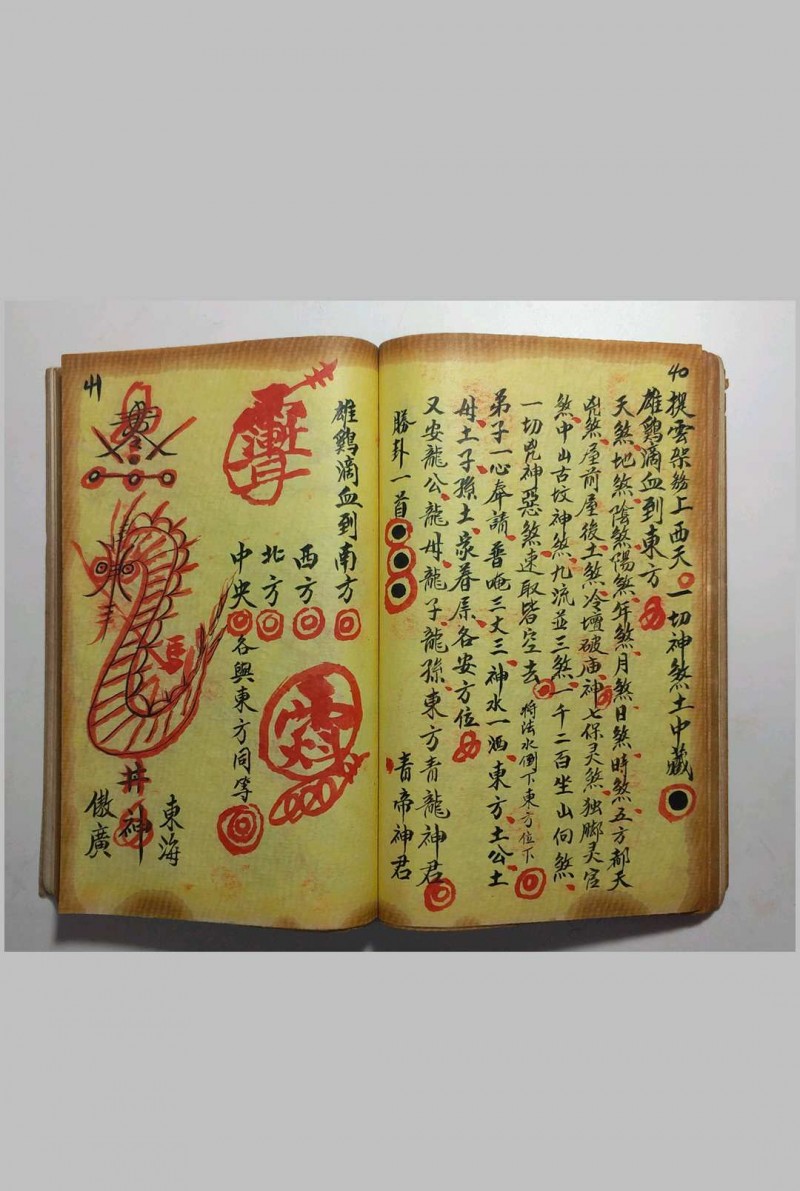 40
提雲架霧上西天一切神煞土中藏
雄鷄滴血到東方
天煞地煞陰煞陽煞年煞月煞日煞時煞五方都天
兇煞屋前屋後土煞冷壇破庙神七保灵煞独脚灵官
煞中山古坟神煞九流並三煞一千二百坐山向煞
一切兇神惡煞速取皆空去將法水倒下東方位下
弟子一心奉請普唵三丈三神水一洒東方土公土
母土子孫土家眷属各安方位
又安龍公龍母龍子龍孫東方青龍神君
勝卦一首 青帝神君
41
雄鷄滴血到南方
西方
北方
中央 各與東方同等
東海
井神
傲廣